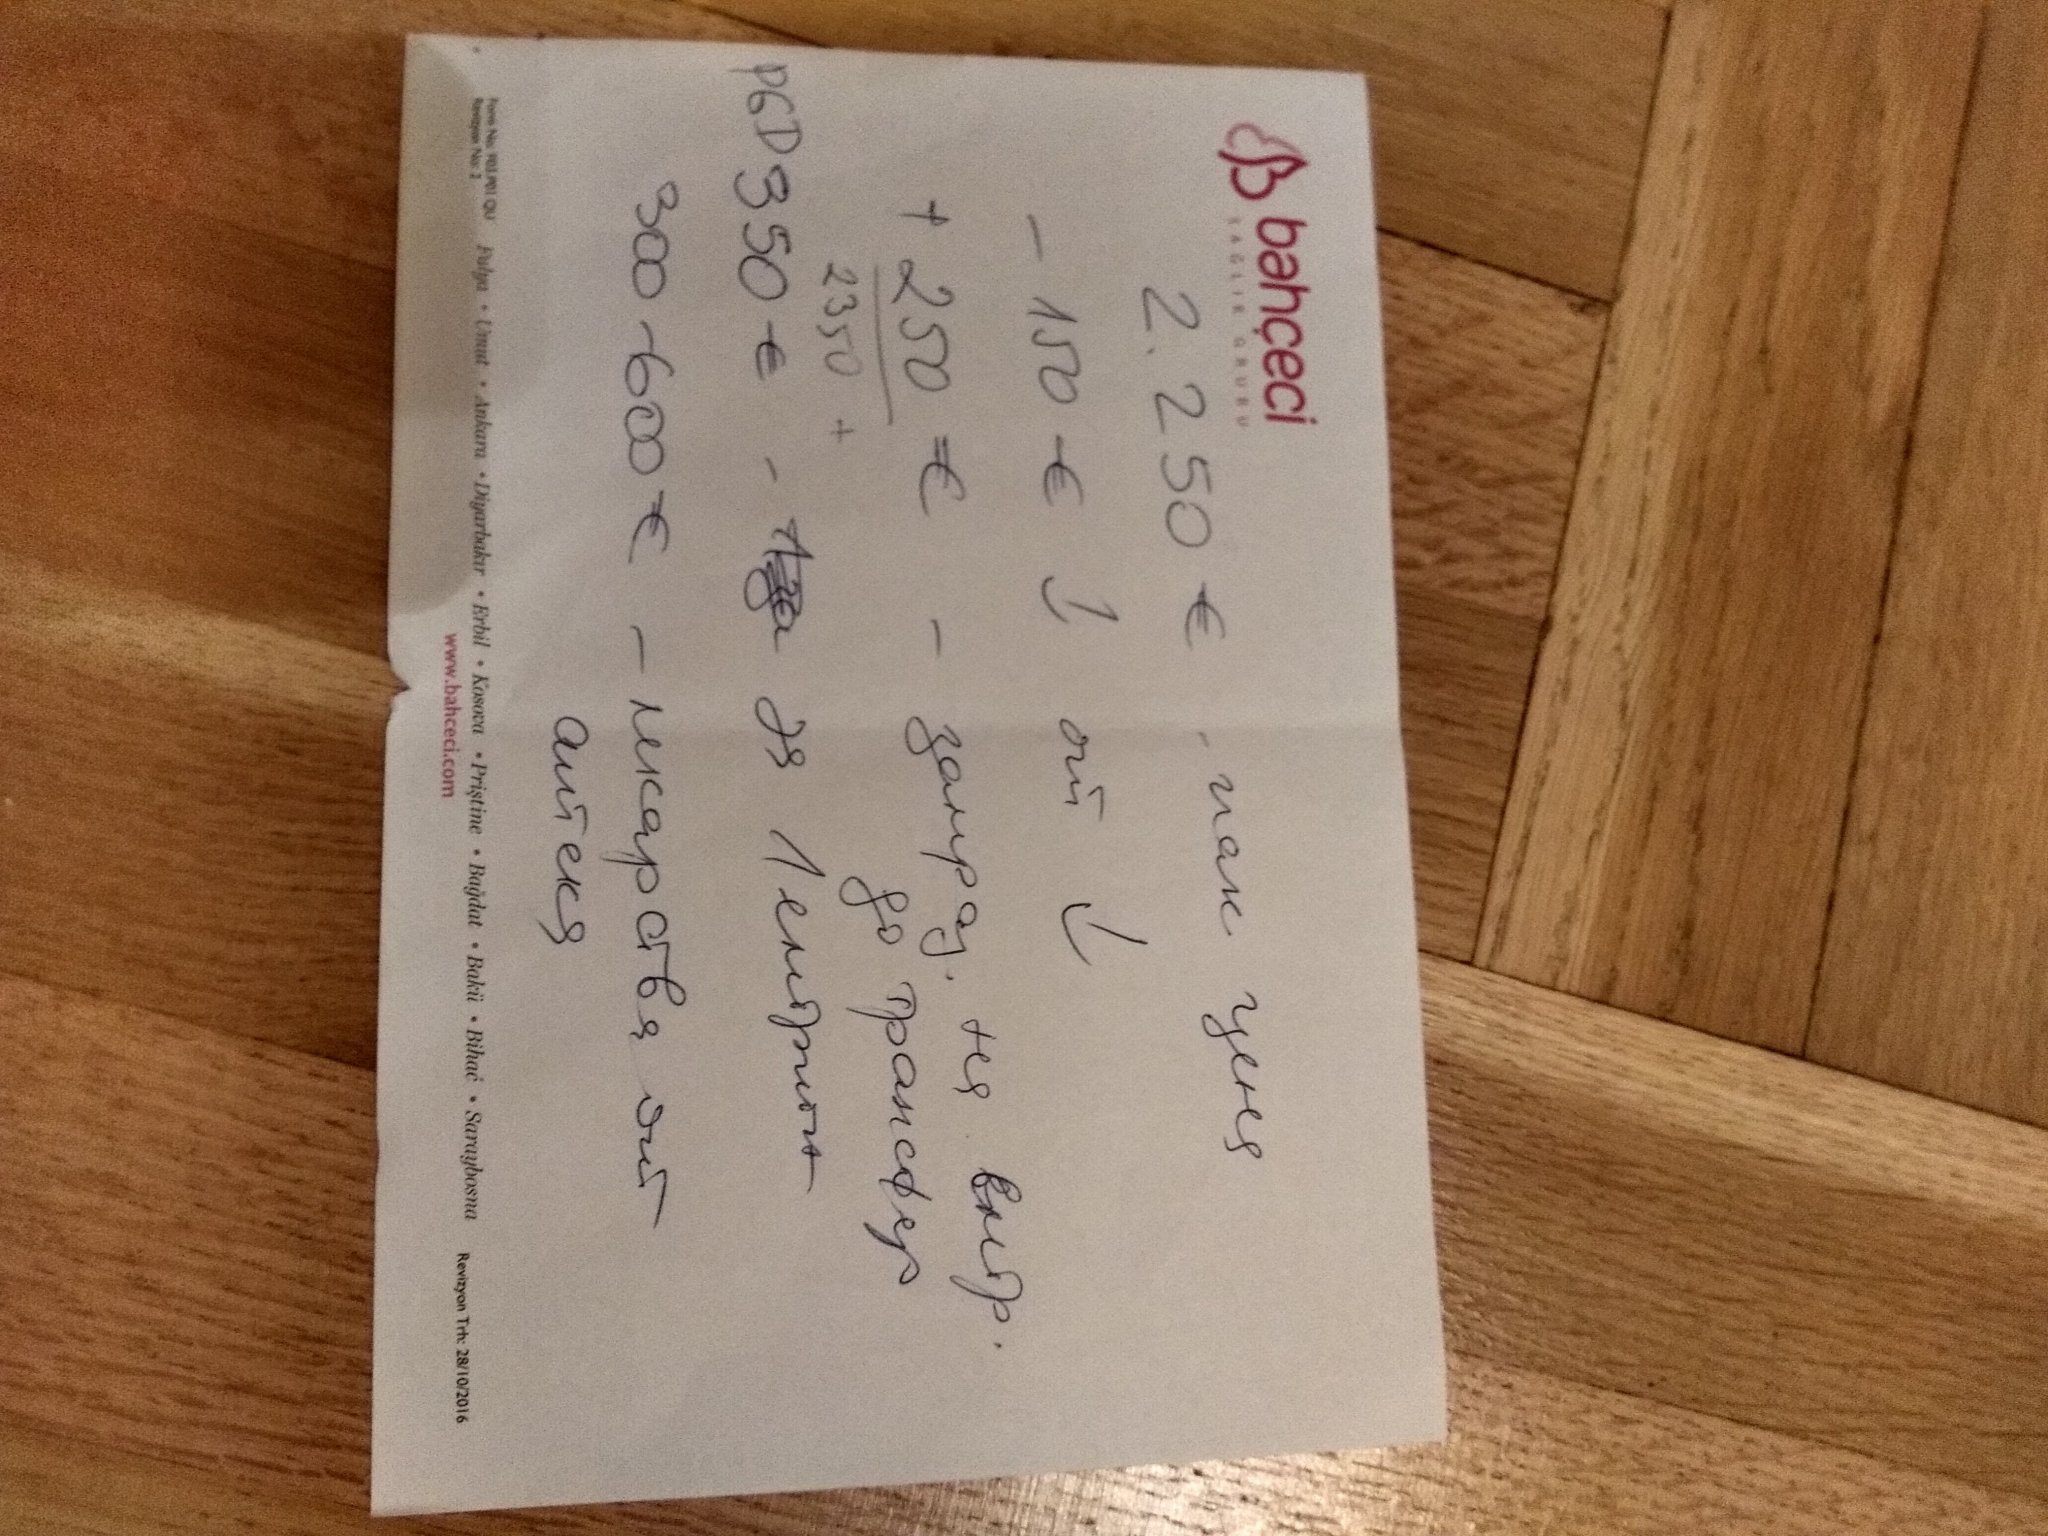 bahçeci
SAĞLIK GRUBU
2.250 € - пак. цена
- 150 € ↓ от ↓
+ 250 € - замраз. на ембр.
до трансфер
2350 +
PGD 350 € - за 1 ембрион
300-600 € - лекарства от
аптека
Form No: Revizyon No: 2 Fulya • Umut • Ankara • Diyarbakır • Erbil • Kosova • Priştine • Bağdat • Bakü • Bihać • Saraybosna Revizyon Trh: 28/10/2016
www.bahceci.com